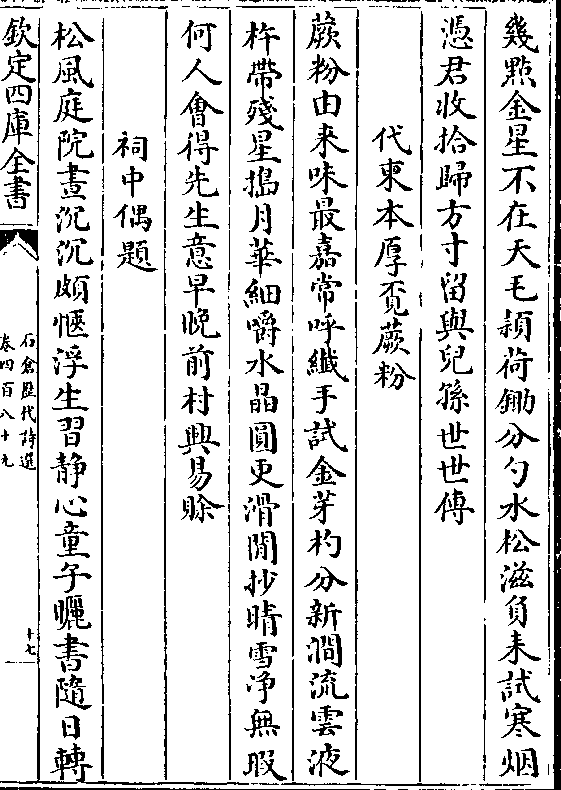 幾㸃金星不在天毛頴荷鋤分勺水松滋負耒試寒烟
憑君收拾歸方寸留與兒孫世世傳
代柬本厚覔蕨粉
蕨粉由来味最嘉常呼纖手試金芽杓分新澗流雲液
杵帶殘星搗月華細嚼水晶圓更滑閒抄晴雪净無暇
何人會得先生意早晚前村興易賒
祠中偶題
松風庭院晝沉沉頗愜浮生習静心童子曬書隨日轉
欽定四庫全書
石倉歴代詩選
卷四百八十九
十七